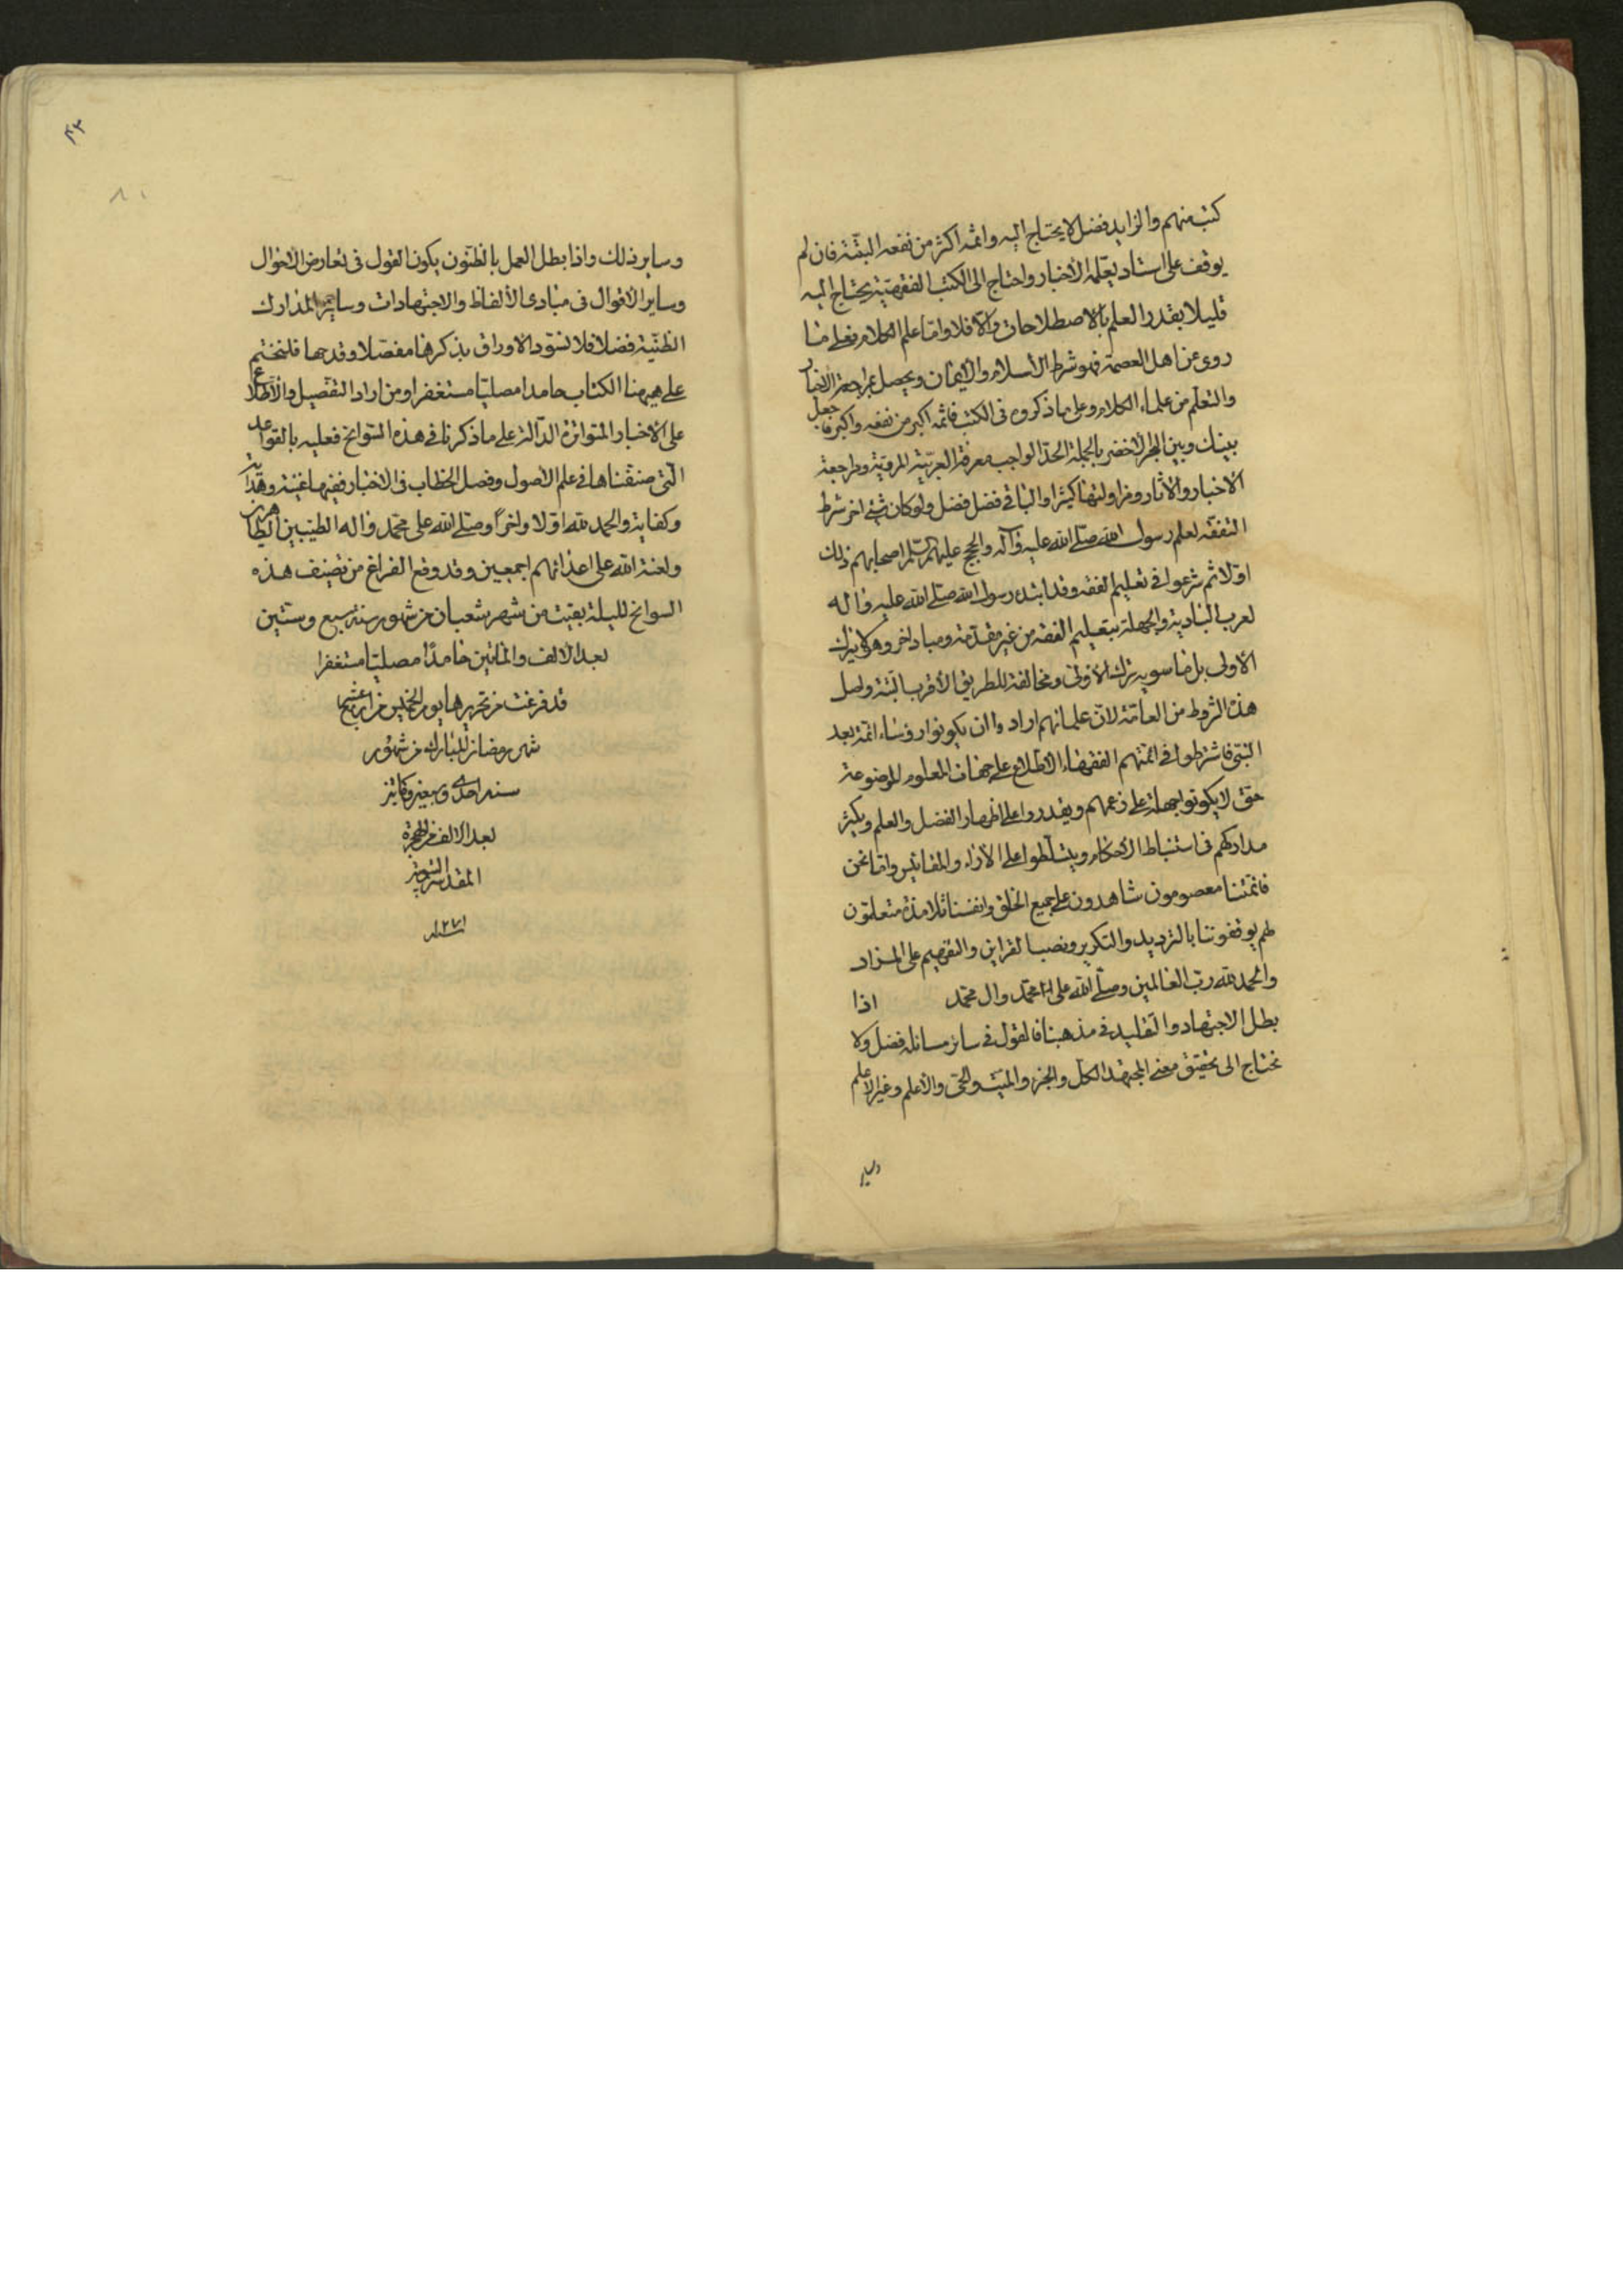 كتب منهم والزايد فضل لا يحتاج اليه واثمه اكثر من نفعه البتّة فان لم
يوقف على استاد يعلّمه الأخبار واحتاج الى الكتب الفقهيّة يحتاج اليه
قليلا بقدر العلم بالاصطلاحات والّا فلا وامّا علم الكلام فعلى ما
روى عن اهل العصمة فهو شرط الأسلام والأيمان ويحصل بمراجعة الاخبار
والتعلّم من علماء الكلام وعلى ما ذكروه فى الكتب فاثمه اكبر من نفعه واكبر فاجعل
بينك وبين البحر الأخضر بالجملة الحدّ الواجب معرفة العربيّة المرويّة ومراجعة
الأخبار والآثار ومزاولتها كثيرا والباقى فضل فضل ولو كان شئ اخر شرط
التفقّه لعلم رسول الله صلّى الله عليه وآله والحجج عليهم السّلم اصحابهم ذلك
اوّلا ثم شرعوا فى تعليم الفقه وقد ابتدء رسول الله صلّى الله عليه واله
لعرب البادية والجهلة بتعليم الفقه من غير مقدّمة ومباد اخر وهو لا يترك
الأولى بل ما سويه ترك الأولى ومخالفة للطريق الأقرب البتة واصل
هذه الشروط من العامّة لانّ علمائهم ارادوا ان يكونوا رؤساء ائمة بعد
النبّى فاشترطوا فى ائمّتهم الفقهاء الأطّلاع على جهات العلوم الموضوعة
حتى لا يكونوا جهلة على زعمهم ويقدروا على اظهار الفضل والعلم ويكثر
مداركهم فى استنباط الأحكام ويتسلّطوا على الآراء والمقائيس وامّا نحن
فائمّتنا معصومون شاهدون على جميع الخلق وانفسنا تلامذة متعلّمون
لهم يوقفوننا بالترديد والتكرير ونصب القراين والتفهيم على المراد
والحمد لله رب العالمين وصلّى الله على محمّد وال محمّد اذا
بطل الاجتهاد والتقليد فى مذهبنا فالقول فى ساير مسائله فضل ولا
نحتاج الى تحقيق معنى المجتهد الكل والجزء والميّت والحىّ والأعلم وغير الأعلم
وساير
٤٣
٨٠
وساير ذلك واذا بطل العمل بالظنّون يكون القول فى تعارض الاحوال
وساير الأقوال فى مبادى الألفاظ والاجتهادات وساير المدارك
الظنّية فضلا فلا نسوّد الاوراق بذكرها مفصّلا وقدحها فلنختم
على هيهنا الكتاب حامدا مصليّا مستغفرا ومن اراد التفصيل والأطّلاع
على الاخبار المتواترة الدّالّة على ما ذكرنا فى هذه السّوانح فعليه بالقواعد
الّتى صنفّناها فى علم الأصول وفصل الخطاب فى الاخبار ففيها غنية وهداية
وكفاية والحمد لله اوّلا واخراً وصلّى الله على محمّد واله الطيّبين الطاهرين
ولعنة الله على اعدائهم اجمعين وقد وقع الفراغ من تصنيف هذه
السوانح لليلة بقيت من شهر شعبان من شهور سنة سبع وستّين
بعد الالف والمائتين حامداً مصليّا مستغفرا
قد فرغت من تحريرها يوم الخميس رابع عشر
شهر رمضان المبارك من شهور
سنه احدى وسبعين ومأتين
بعد الالف من الهجرة
المقدسة النبوية
١٢٧١